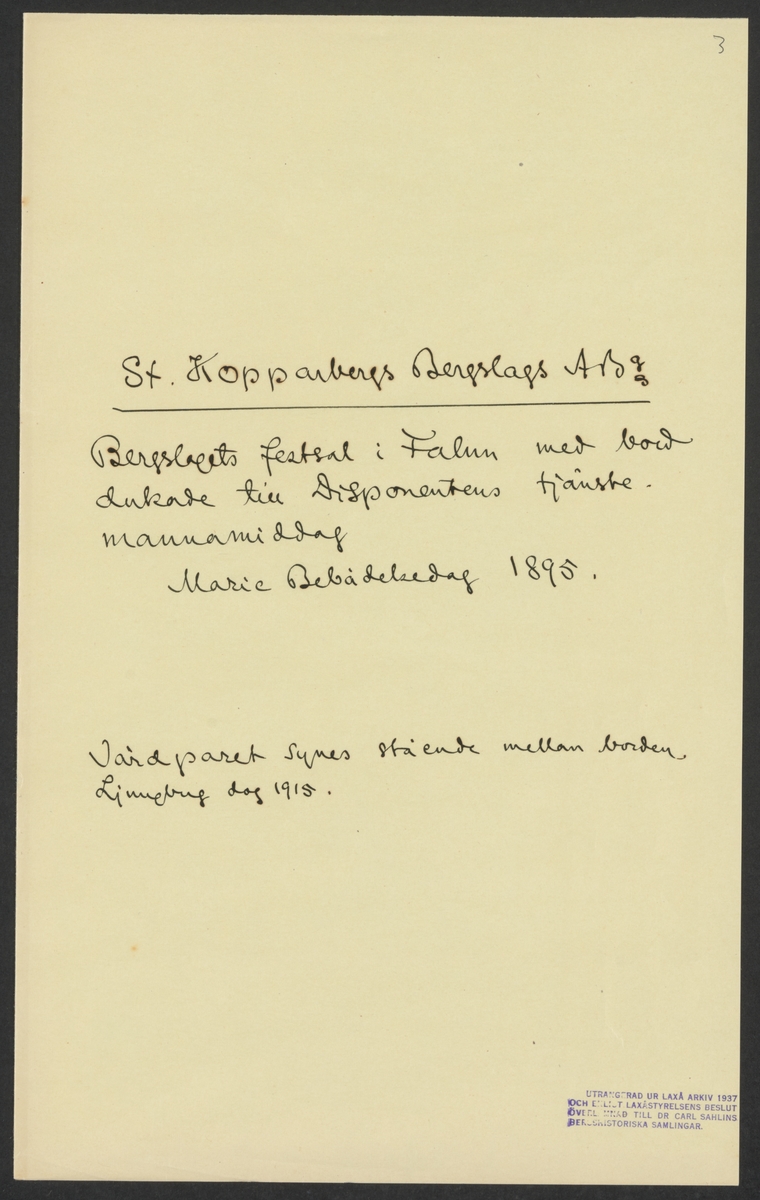 3
St. Kopparbergs Bergslags AB
Bergslagets festsal i Falun med bord
dukade till Disponentens tjänste-
mannamiddag
Marie Bebådelsedag 1895.
Värdparet synes stående mellan borden.
dog 1915.
UTRANGERAD UR LAXÅ ARKIV 1937
OCH ENLIGT LAXÅSTYRELSENS BESLUT
ÖVERLÄMNAD TILL DR CARL SAHLINS
BERGSHISTORISKA SAMLINGAR.